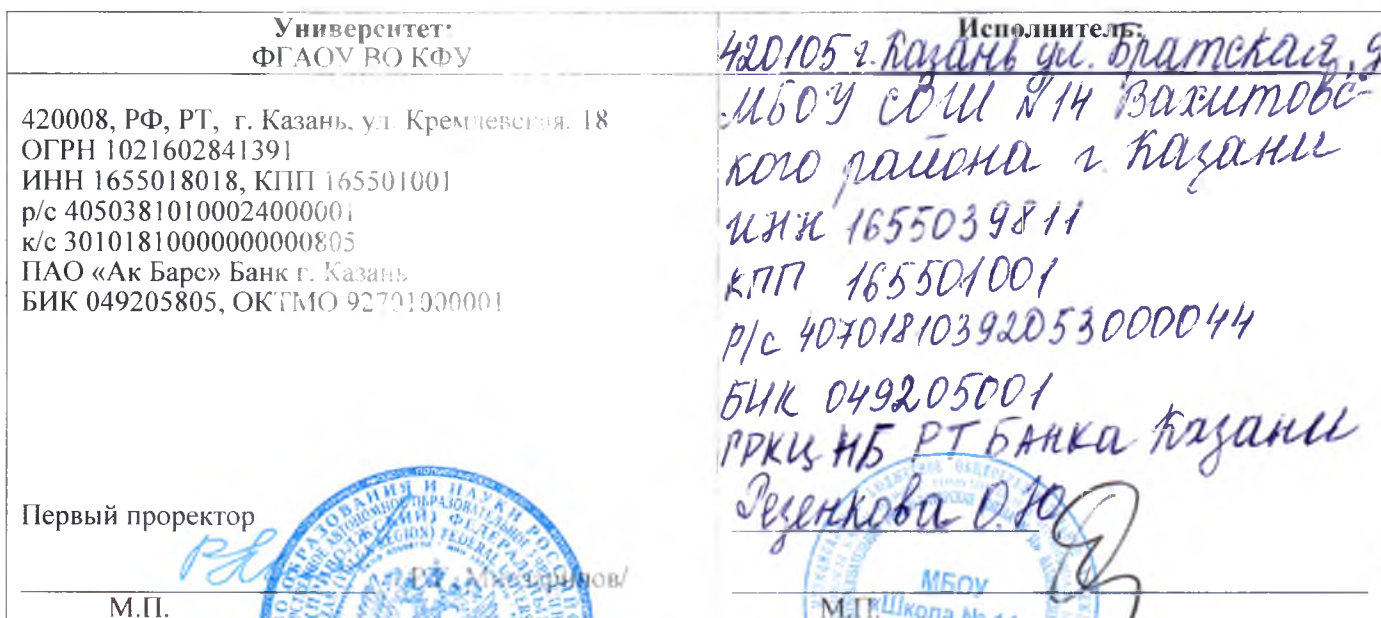 Университет:
ФГАОУ ВО КФУ
420008, РФ, РТ, г. Казань, ул. Кремлевская, 18
ОГРН 1021602841391
ИНН 1655018018, КПП 165501001
р/с 40503810100024000001
к/с 30101810000000000805
ПАО «Ак Барс» Банк г. Казань
БИК 049205805, ОКТМО 92701000001
Первый проректор
М.П.
Исполнитель:
420105 г. Казань ул. Братская, 9
МБОУ СОШ №14 Вахитовс-
кого района г Казани
ИНН 1655039811
КПП 165501001
Р/с 40701810392053000044
БИК 049205001
ГРКЦ НБ РТ Банка Казани
Резенкова О.Ю
МБОУ
М.П.
«Школа №